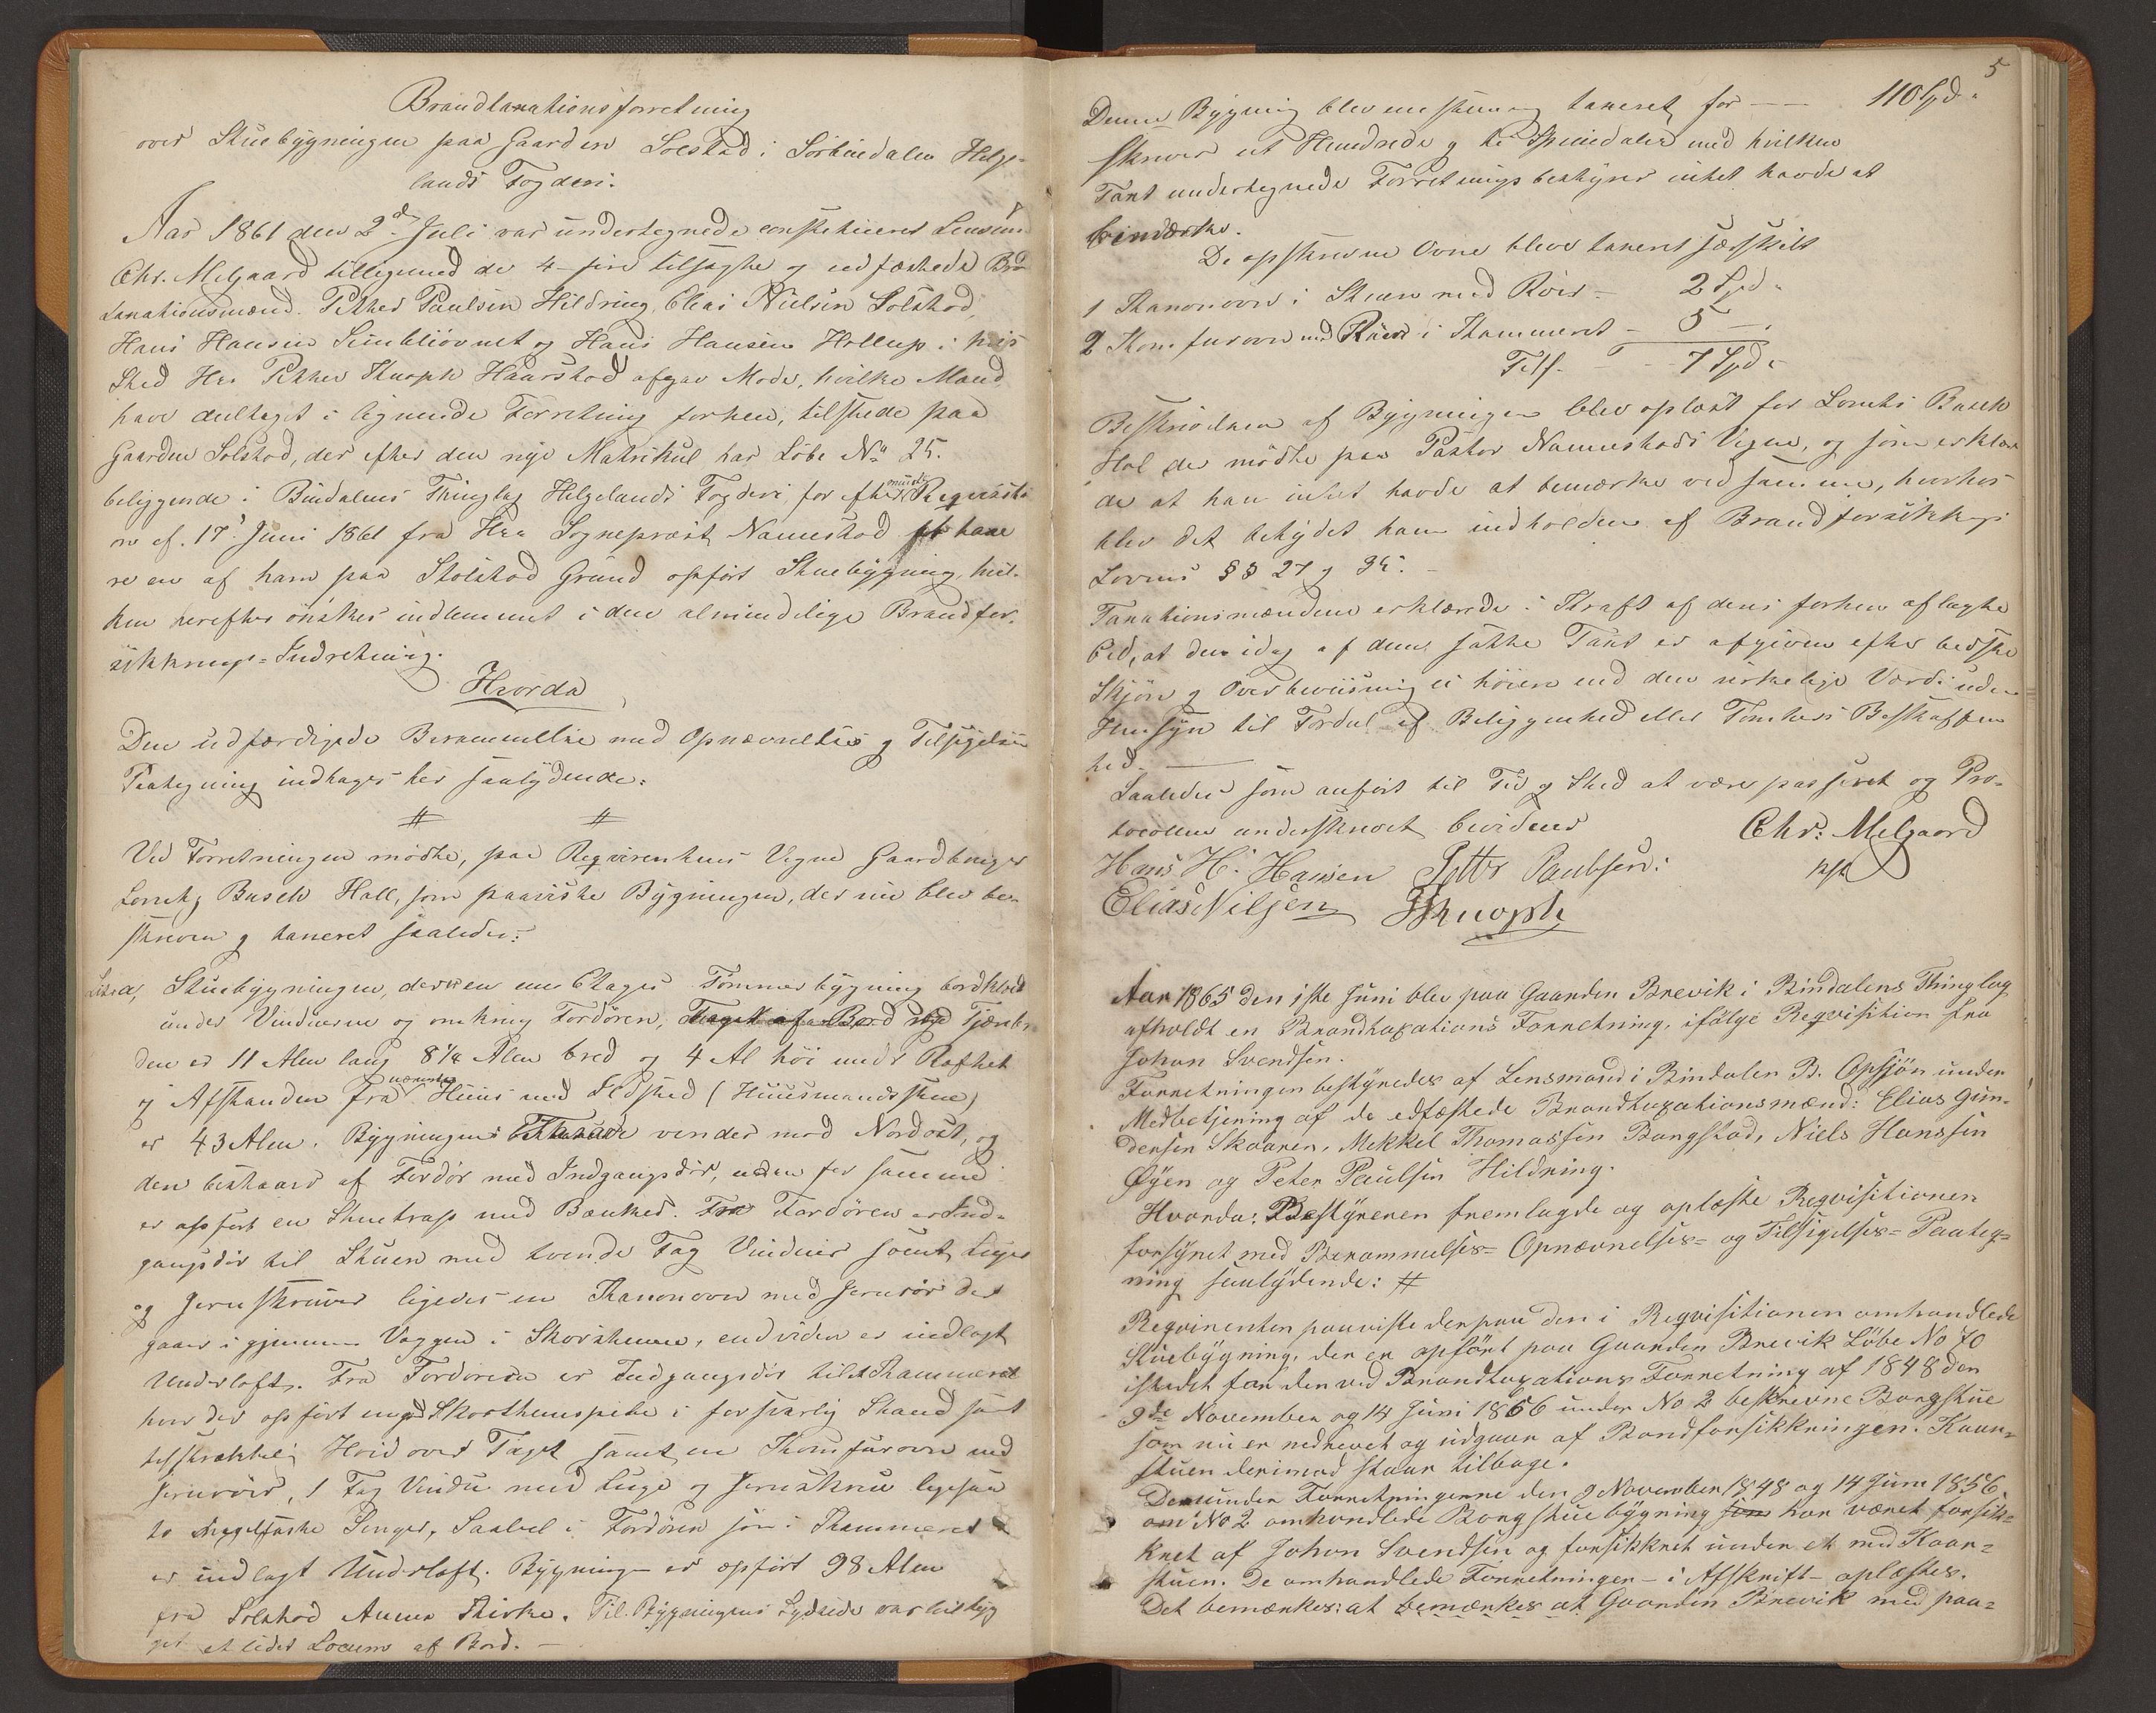 Brandtaxationsforretning
over Stuebygningen paa Gaarden Solstad i Sörbindalen Helge-
lands Fogderi.
Aar 1861 den 2den Juli var undertegnede constitueret Lensmd
Chr. Melgaard tilligemed de 4 fire tilsagte og edfæstede Bra
taxationsmænd. Petter Paulsen Hildring, Elias Nielsen Solstad,
Hans Hansen og Hans Hansen Hollup i hvis
Sted Hr. Petter Knoph Haarstad afgav Mode, hvilke Mænd
have deeltaget i lignende Forretning forhen, tilstede paa
Gaarden Solstad, der efter den nye Matrikul har Löbe No 25.
beliggende i Bindalens Thinglag Helgelands Fogderi, for efter mundtl. Reqvisiti
on af. 17 Juni 1861 fra Hr. Sognepræst Nannestad at taxe
re en af ham paa Solstad Grund opfört Stuebygning, hvil-
ken herefter önskes indlemmet i den almindelige Brandfor-
sikkrings-Indretning.
Hvorda
Den udfærdigede Berammelse med Opnævnelses og Tilsigelses
Paategning indtages her saalydende:
# #
Ved Forretningen mödte, paa Reqvirentens Vegne Gaardbruger
Lorentz Busch Hall, som paaviste Bygningen, der nu blev be-
skreven og taxeret saaledes:
Litra a, Stuebygningen, der er en een Etages Tömmerbygning bordklæd
under Vinduerne og omkring Fordören, Taget af Bord
den er 11 Alen lang 8 1/4 Alen bred og 4 Al höi under Rafthet
og Afstanden fra nærmeste Huus med Ildsted (Huusmandsstue)
er 43 Alen. Bygningens vender mod Nordost, og
den bestaaer af Fordör med Indgangsdör, uden for samme
er opfört en Stuetrap med Bænker. Fra Fordören er Ind-
gangsdör til Stuen med tvende Fag Vinduer samt Luger
og Jernskruver ligeledes en Kanonovn med Jernrör der
gaaer i gjennem Væggen i Skorstenen, endvidere er indlagt
Underloft. Fra Fordören er Indgangsdör til Kammeret
hvor der opfört mod Skorstenspibe i forsvarlig Stand samt
tilstrækkelig Höide over Taget samt en Komfurovn med
Jernrör, 1 Fag Vindue med Luge og Jernskrue ligesaa
to Senger, Saavel i Fordören som i Kammeret
er indlagt Underloft. Bygningen er opfört 98 Alen
fra Solstad Annex Kirke. Til Bygningens Sydside var tilbyg
get et lidet Locum af Bord. —
5
Denne Bygning blev eenstemmig taxeret for — — 110 Spd.
skriver et Hundrede og ti Speciedaler med hvilken
Taxt undertegnede Forretningsbestyrer intet havde at
bemærke.
De opskrevne Ovne bleve taxeret særskilt
1 Kanonovn i Stuen med Röer - 2 Spd.
2 Komfurovn med Röer i Kammeret - 5 —
Tils. - - - 7 Spd.
Beskrivelsen af Bygningen blev oplæst for Lorents Busch
Hol der mödte paa Pastor Nannestads Vegne, og som erklære
de at han intet havde at bemærke ved samme, hvorhos
blev det betydet ham indholden af Brandforsikkrings
Lovens §§ 27 og 34. —
Taxationsmændene erklærede i Kraft af deres forhen aflagte
Eed, at den idag af dem satte Taxt er afgiven efter bedste
Skjön og Overbeviisning ei höiere end den virkelige Værdi uden
Hensyn til Fordeel af Beliggenhed eller Tomtens Beskaffen
hed. ———
Saaledes som anfört til Tid og Sted at være passeret og Pro-
tocollen underskrevet bevidnes
Chr. Melgaard
kst
Hans H. Hansen Petter Paulsen.
Elias Nilsen PKnoph
Aar 1865 den 1ste Juni blev paa Gaarden Brevik i Bindalens Thinglag
afholdt en Brandtaxations Forretning, ifölge Reqvisition fra
Johan Svendsen.
Forretningen bestyredes af Lensmand i Bindalen B. Opsjön under
Medbetjening af de edfæstede Brandtaxationsmænd: Elias Gun-
dersen Skaaren, Mekkel Thomassen Bangstad, Niels Hanssen
Øyen og Peter Paulsen Hildring.
Hvorda: Bestyreren fremlagde og oplæste Reqvisitionen
forsynet med Berammelses- Opnævnelses- og Tilsigelses- Paateg-
ning saalydende: #
Reqvirenten paaviste derpaa den i Reqvisitionen omhandlede
Stuebygning, der er opfört paa Gaarden Brevik Löbe No 70
istedet for den ved Brandtaxations Forretning af 1848 den
9de November og 14 Juni 1856 under No 2 beskrevne Borgstue
som nu er nedrevet og udgaar af Brandforsikkringen. Kaar-
stuen derimod staar tilbage.
Den under Forretningerne den 9 November 1848 og 14 Juni 1856
om No 2 omhandlede Borgstuebygning som har været forsik-
kret af Johan Svendsen og forsikkret under et med Kaar-
stuen. De omhandlede Forretninger - i Afskrift - oplæstes.
Det bemærkes: at bemærkes at Gaarden Brevik med paa-